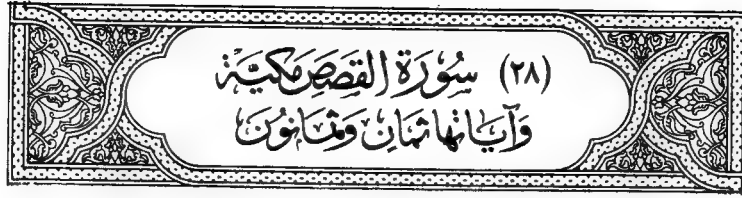 (٢٨) سُورَةُ القَصَصِ مَكيَّة
وَآيَانهَا ثمَانِ وَثمَانوُن